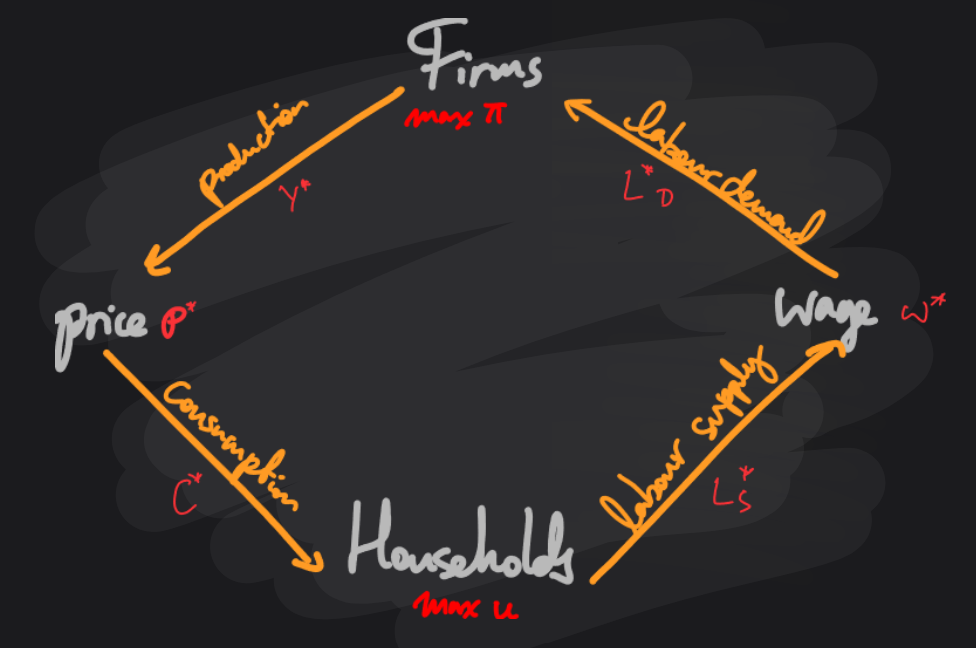 Firms
max π
production
Y*
labour demand
L*D
price P*
wage w*
consumption
C*
labour supply
L*S
Households
max u